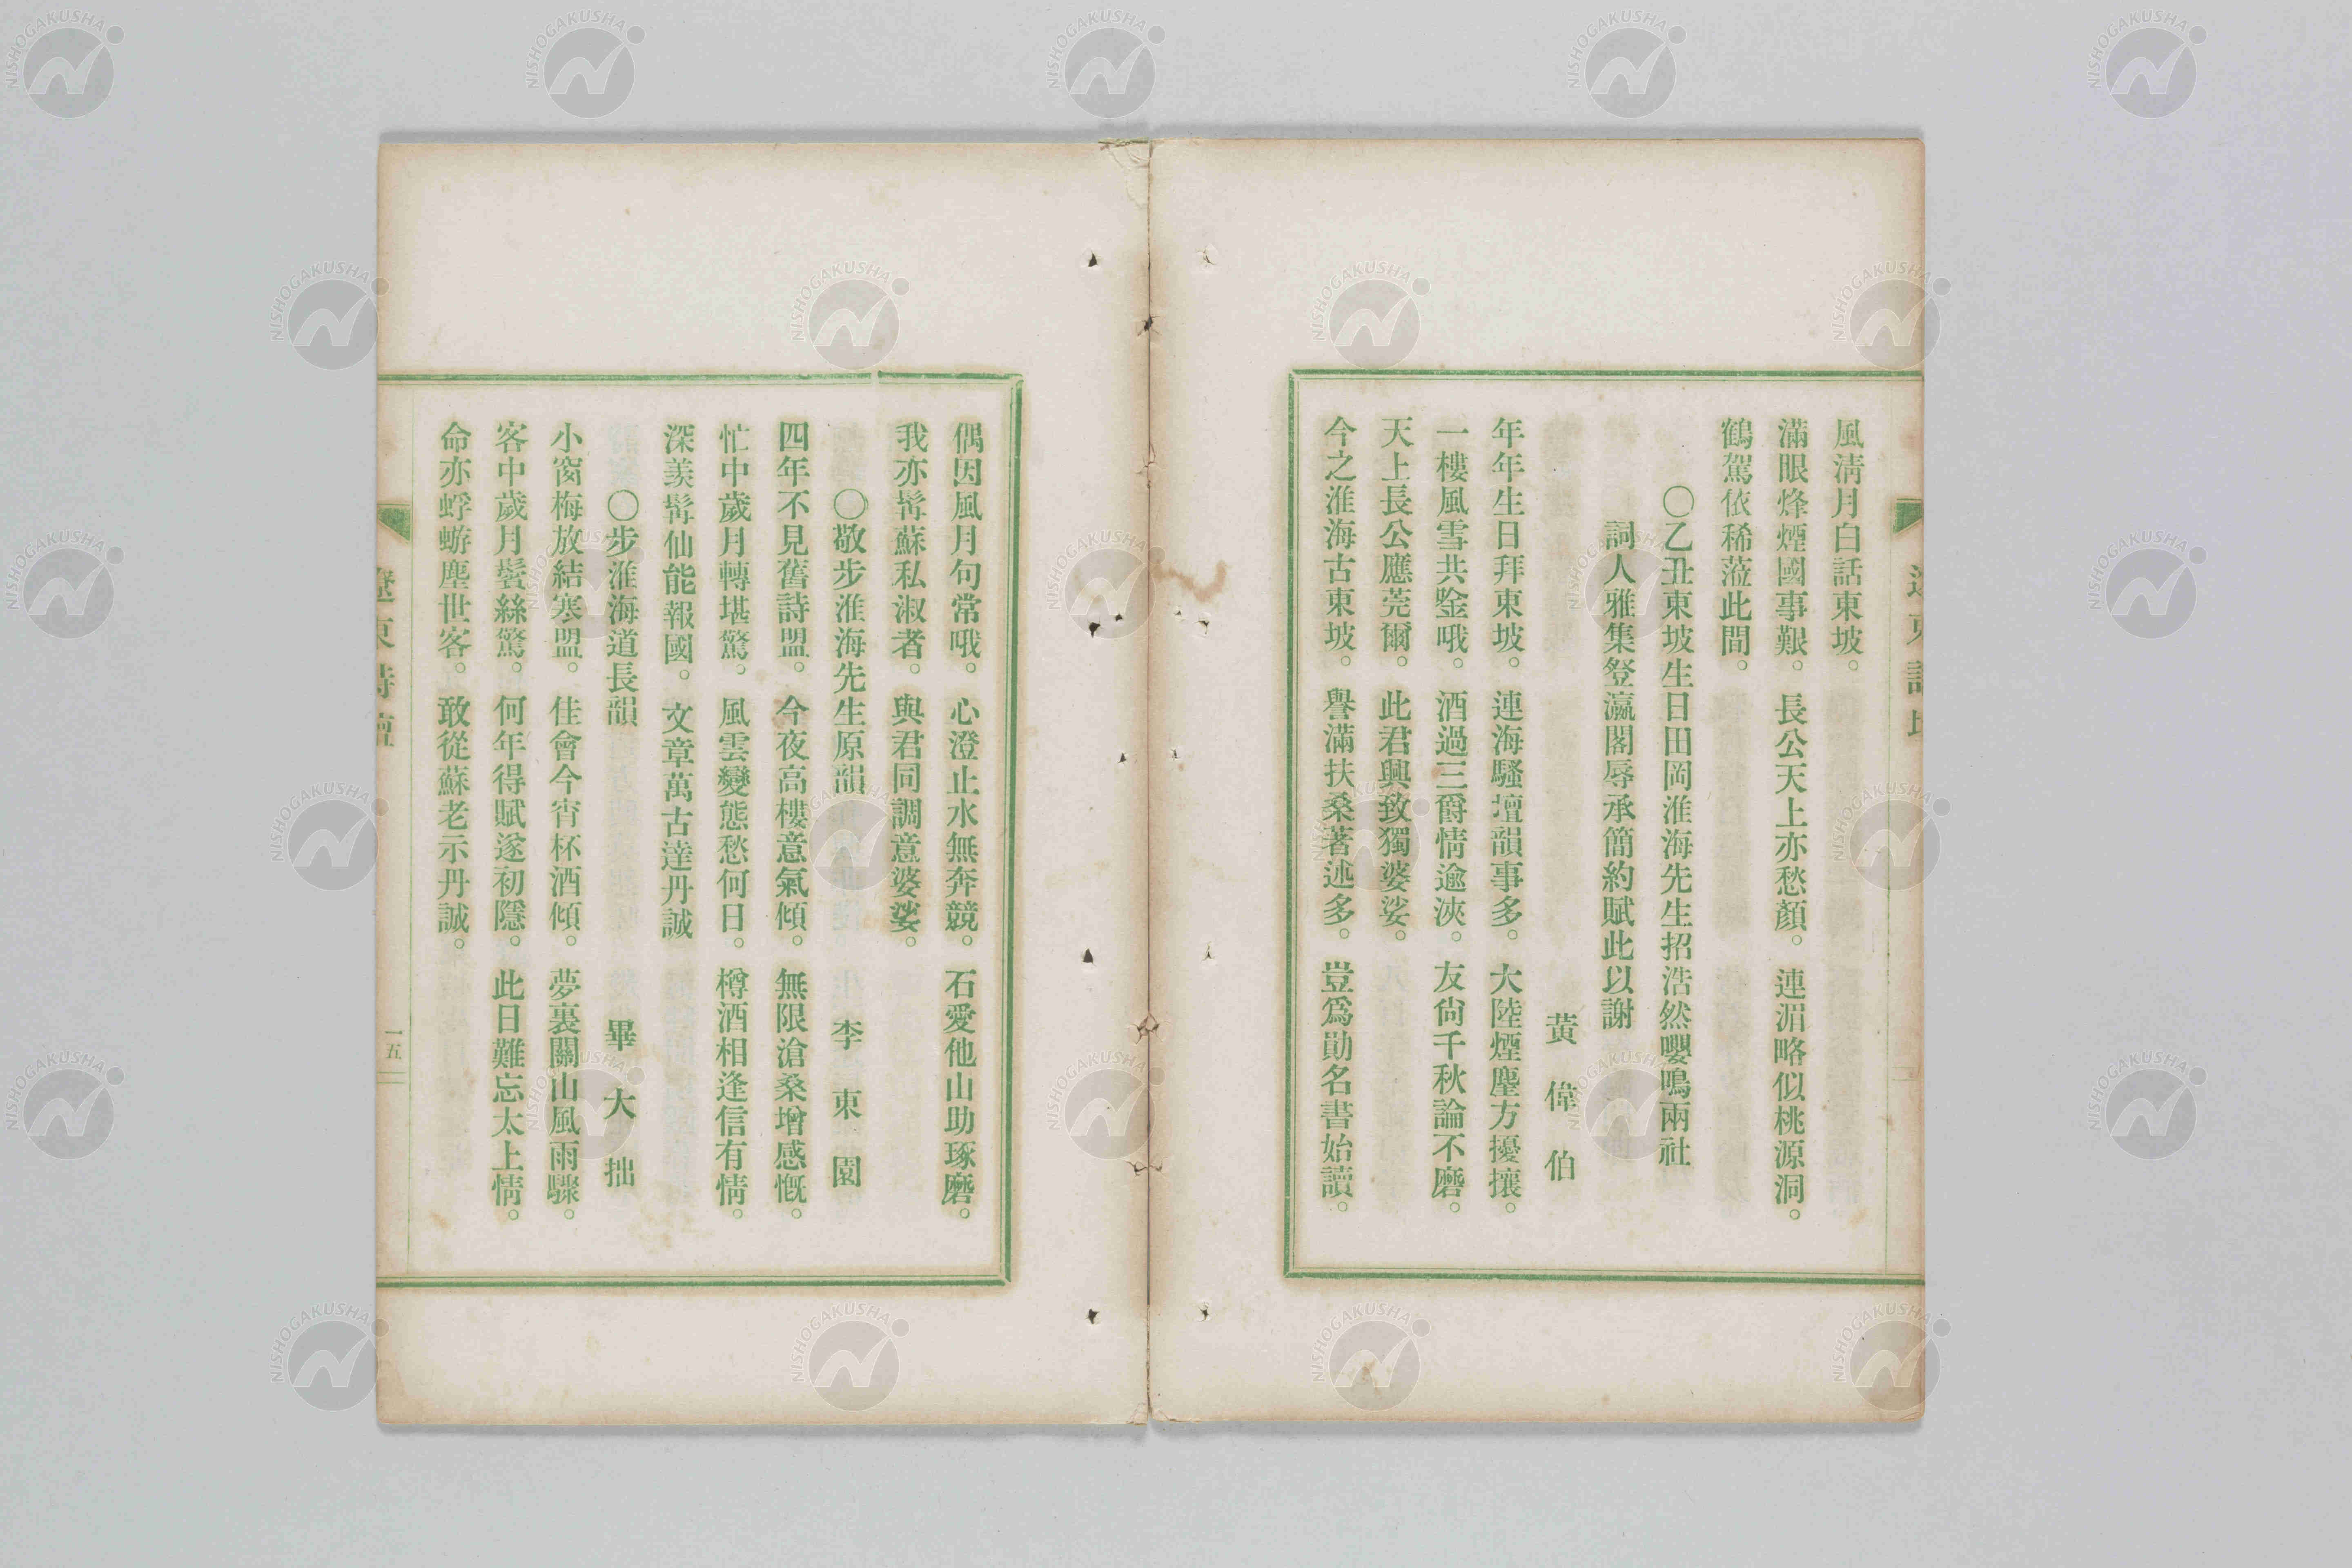 風淸月白話東坡。
滿眼烽煙國事艱。長公天上亦愁顏。連湄略似桃源洞。
鶴駕依稀蒞此間。
〇乙丑東坡生日田岡淮海先生招浩然嚶鳴兩社
詞人雅集登瀛閣辱承簡約賦此以謝
黃偉伯
年年生日拜東坡。連海騷壇韻事多。大陸煙塵方擾攘。
一樓風雪共唫哦。酒過三爵情逾浹。友尙千秋論不磨。
天上長公應莞爾。此君興致獨婆娑。
今之淮海古東坡。譽滿扶桑著述多。豈爲勛名書始讀。
偶因風月句常哦。心澄止水無奔競。石愛他山助琢磨。
我亦髯蘇私淑者。與君同調意婆娑。
〇敬步淮海先生原韻 李東園
四年不見舊詩盟。今夜高樓意氣傾。無限滄桑增感慨。
忙中歲月轉堪驚。風雲變態愁何日。樽酒相逢信有情。
深羨髯仙能報國。文章萬古達丹誠
〇步淮海道長韻 畢大拙
小窗梅放結寒盟。佳會今宵杯酒傾。夢裏關山風雨驟。
客中歲月鬢絲驚。何年得賦遂初隱。此日難忘太上情。
命亦蜉蝣塵世客。敢從蘇老示丹誠。
遼東詩壇
一五
NISHOGAKUSHA